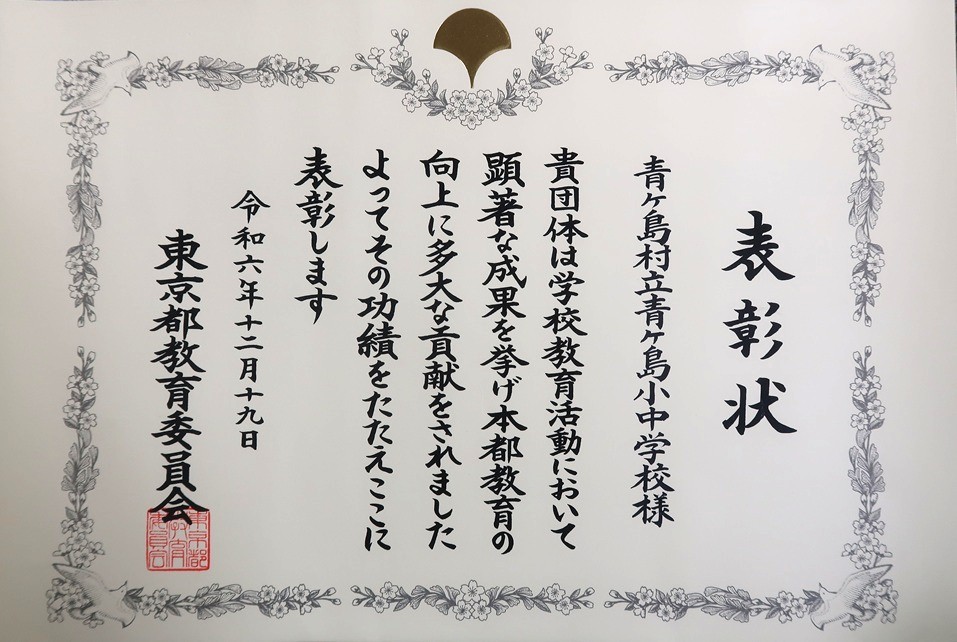 表彰状
青ヶ島村立青ヶ島小中学校様
貴団体は学校教育活動において
顕著な成果を挙げ本都教育の
向上に多大な貢献をされました
よってその功績をたたえここに
表彰します
令和六年十二月十九日
東京都教育委員会
東京都
教育
委員会